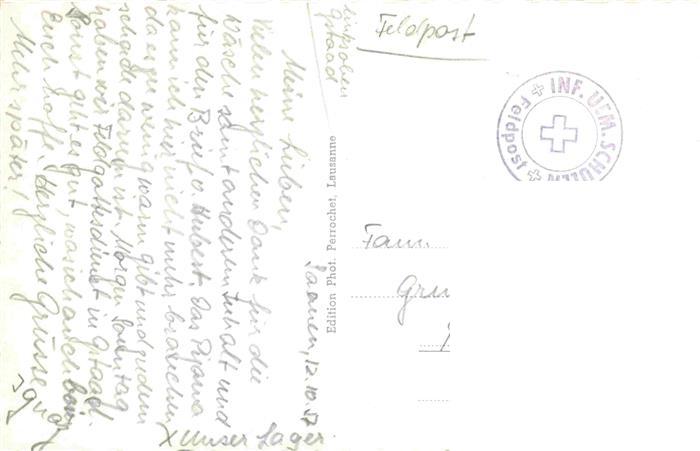 Saanen, 12.10.57
Meine Lieben,
Vielen herzlichen Dank für die
Wäsche samt anderem Inhalt und
für den Brief v. Hubert. Das Pijama
kann ich hier nicht mehr brauchen
da es zu wenig warm gibt und zudem
schade darum ist. Morgen Sonntag
haben wir Feldgottesdienst in Gstaad.
Sonst geht es gut, was ich auch bei
Euch hoffe. Herzliche Grüsse
Mehr später!
X Unser Lager.
links oben
Gstaad
Edition Phot. Perrochet, Lausanne
Feldpost
INF. UEM. SCHULEN
Feldpost
Fam
Gru